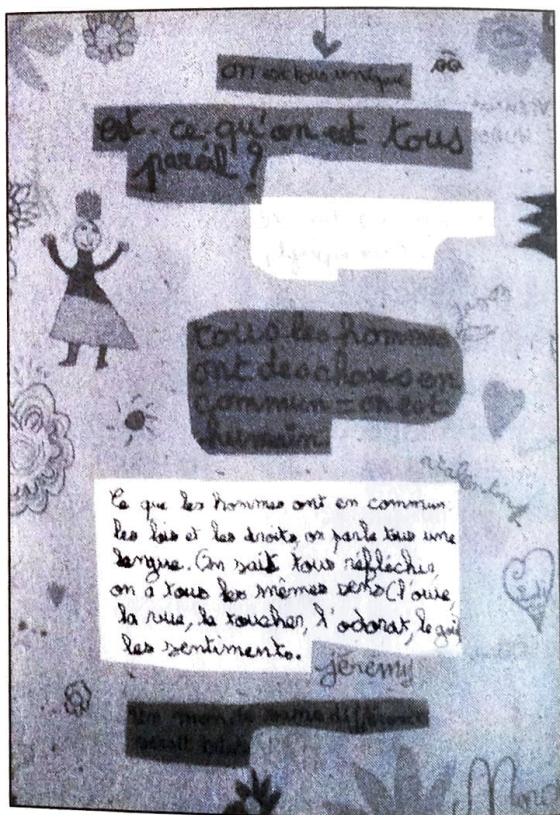 on est tous unique
est-ce qu'on est tous
pareil ?
tous les hommes
ont des choses en
commun = on est
humain
Ce que les hommes ont en commun :
les lois et les droits, on parle tous une
langue. On sait tous réfléchir,
on a tous les mêmes sens (l'ouïe,
la vue, la toucher, l'odorat, le goû
les sentiments.
jérémy
Un monde sans différence
serait
valentine